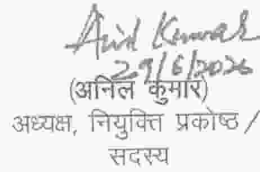 Anil Kumar
29/6/2026
(अनिल कुमार)
अध्यक्ष, नियुक्ति प्रकोष्ठ /
सदस्य